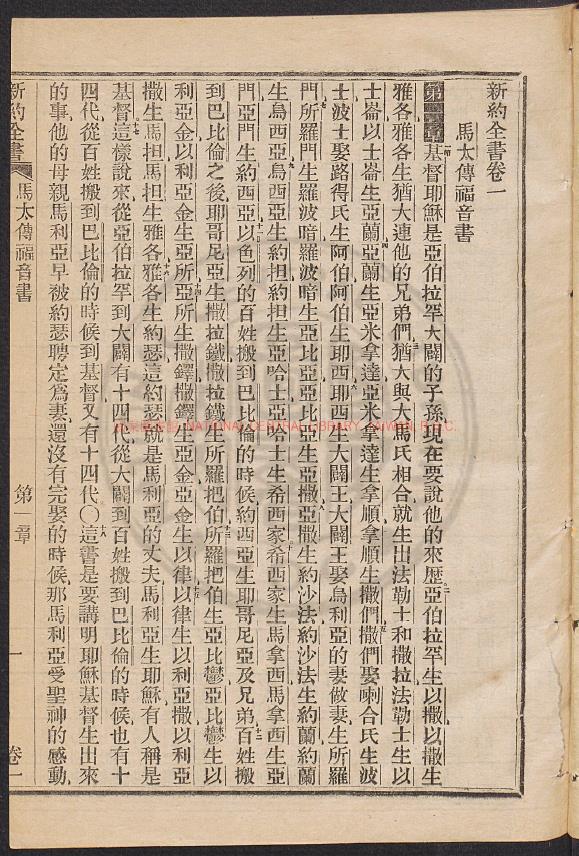 新約全書卷一
馬太傳福音書
第一章基督耶穌是亞伯拉罕大闢的子孫現在要說他的來歷亞伯拉罕生以撒以撒生
雅各雅各生猶大連他的兄弟們猶大與大馬氏相合就生出法勒士和撒拉法勒士生以
士崙以士崙生亞蘭亞蘭生亞米拿達亞米拿達生拿順拿順生撒們撒們娶喇合氏生波
士波士娶路得氏生阿伯阿伯生耶西耶西生大闢王大闢王娶烏利亞的妻做妻生所羅
門所羅門生羅波暗羅波暗生亞比亞亞比亞生亞撒亞撒生約沙法約沙法生約蘭約蘭
生烏西亞烏西亞生約担約担生亞哈士亞哈士生希西家希西家生馬拿西馬拿西生亞
門亞門生約西亞以色列的百姓搬到巴比倫的時候約西亞生耶哥尼亞及兄弟百姓搬
到巴比倫之後耶哥尼亞生撒拉鐵撒拉鐵生所羅把伯所羅把伯生亞比鬱亞比鬱生以
利亞金以利亞金生亞所亞所生撒鐸撒鐸生亞金亞金生以律以律生以利亞撒以利亞
撒生馬担馬担生雅各雅各生約瑟這約瑟就是馬利亞的丈夫馬利亞生耶穌有人稱是
基督這樣說來從亞伯拉罕到大闢有十四代從大闢到百姓搬到巴比倫的時候也有十
四代從百姓搬到巴比倫的時候到基督又有十四代〇這書是要講明耶穌基督生出來
的事他的母親馬利亞早被約瑟聘定爲妻還沒有完娶的時候那馬利亞受聖神的感動
新約全書 馬太傳福音書 第一章 一 卷一
NATIONAL CENTRAL LIBRARY, TAIWAN, R.O.C.